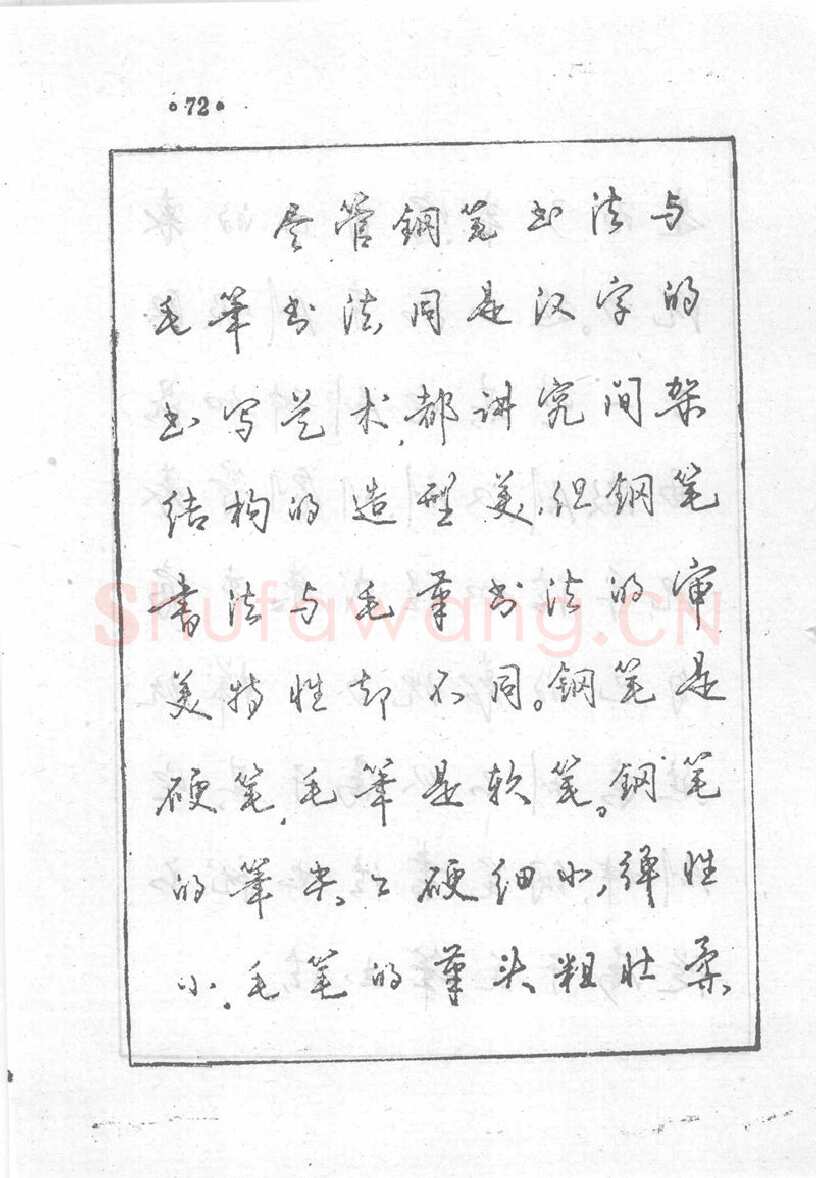 •72•
尽管钢笔书法与
毛笔书法同是汉字的
书写艺术,都讲究间架
结构的造型美,但钢笔
书法与毛笔书法的审
美特性却不同。钢笔是
硬笔,毛笔是软笔。钢笔
的笔尖坚硬细小,弹性
小,毛笔的笔头粗壮柔
Shufawang.CN